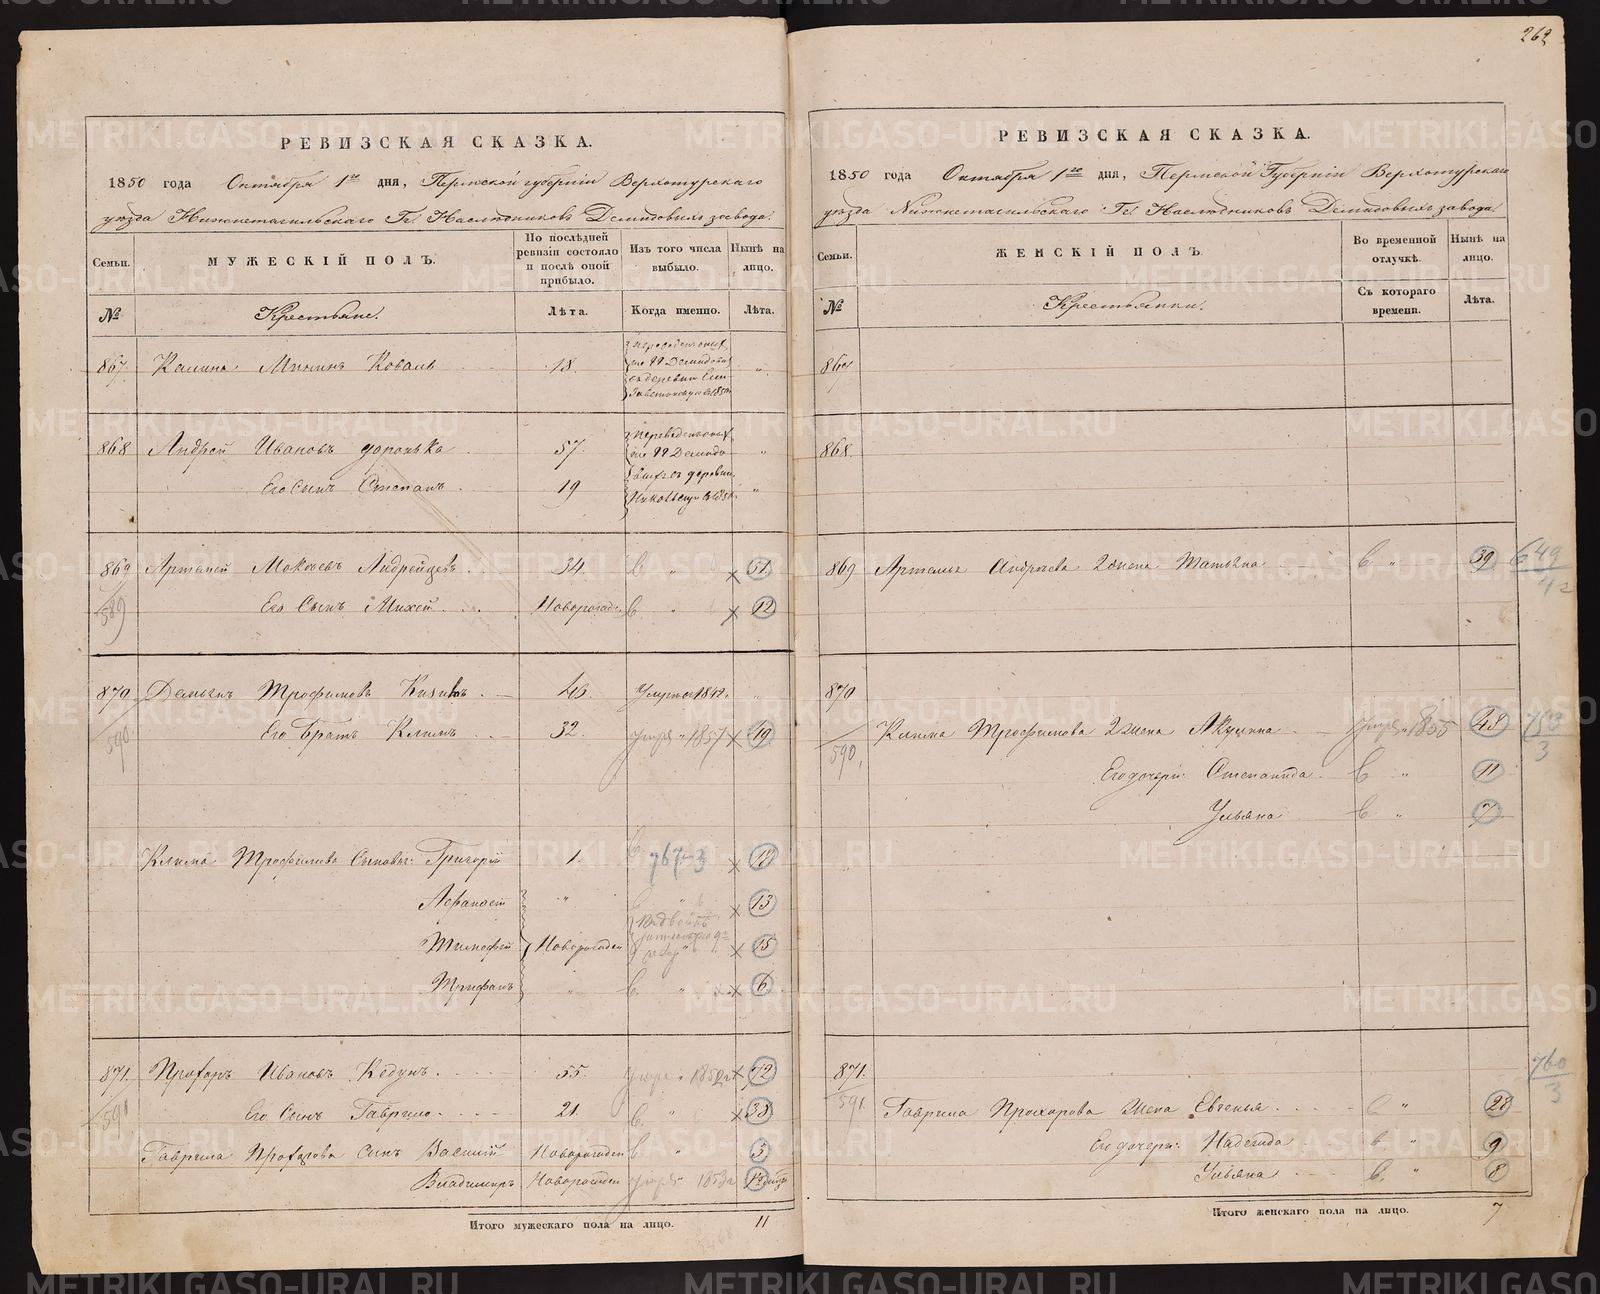 262
РЕВИЗСКАЯ СКАЗКА.
1850 года Октября 1го дня, Пермской губернiи Верхотурскаго
уѣзда Нижнетагильскаго Гг. Наслѣдниковъ Демидовыхъ завода.
Семьи.
МУЖЕСКIЙ ПОЛЪ.
По послѣдней ревизiи состояло и послѣ оной прибыло.
Изъ того числа выбыло.
Нынѣ на лицо.
№
Крестьяне.
Лѣта.
Когда именно.
Лѣта.
867 Калина Мининъ Коваль 18. "
868 Андрей Ивановъ 57. "
Его Сынъ Степанъ. 19 "
869 Артемiй Андрейцевъ. 34. " × 51
589 Его Сынъ Михей. Новорожден. " × 12
870 Демьянъ Трофимовъ 46. Умеръ 1842. "
590 Его Братъ Климъ. 32. умре 1857 × 49
Клима Трофимова Сыновья: Григорiй 1. 767-3 × 17
Афанасiй " × 13
Тимофей Новорожден × 15
Трифонъ " × 6
871. Прохоръ Ивановъ Кедунъ. 55. умре 1852 × 72
591 Его Сынъ Гаврило. 21. " × 38
Гаврила Прохорова сынъ Василiй Новорожден " 5
Владимиръ Новорожден умре 1853
Итого мужескаго пола на лицо. 11
РЕВИЗСКАЯ СКАЗКА.
1850 года Октября 1го дня, Пермской Губернiи Верхотурскаго
уѣзда Нижнетагильскаго Гг. Наслѣдниковъ Демидовыхъ завода.
Семьи.
ЖЕНСКIЙ ПОЛЪ.
Во временной отлучкѣ.
Нынѣ на лицо.
№
Крестьянки.
Съ котораго времени.
Лѣта.
867
868.
869 Артемья Андреева 2 жена Татьяна " 39 649
42
870
590. Клима Трофимова 2 жена Акулина умре 1855 48 753
3
Его дочери: Степанида " 11
Ульяна " 7
871. 760
3
591. Гаврила Прохорова жена Евгенья " 28
Его дочери: Надежда " 9
Ульяна " 8
Итого женскаго пола на лицо. 7
METRIKI.GASO-URAL.RU